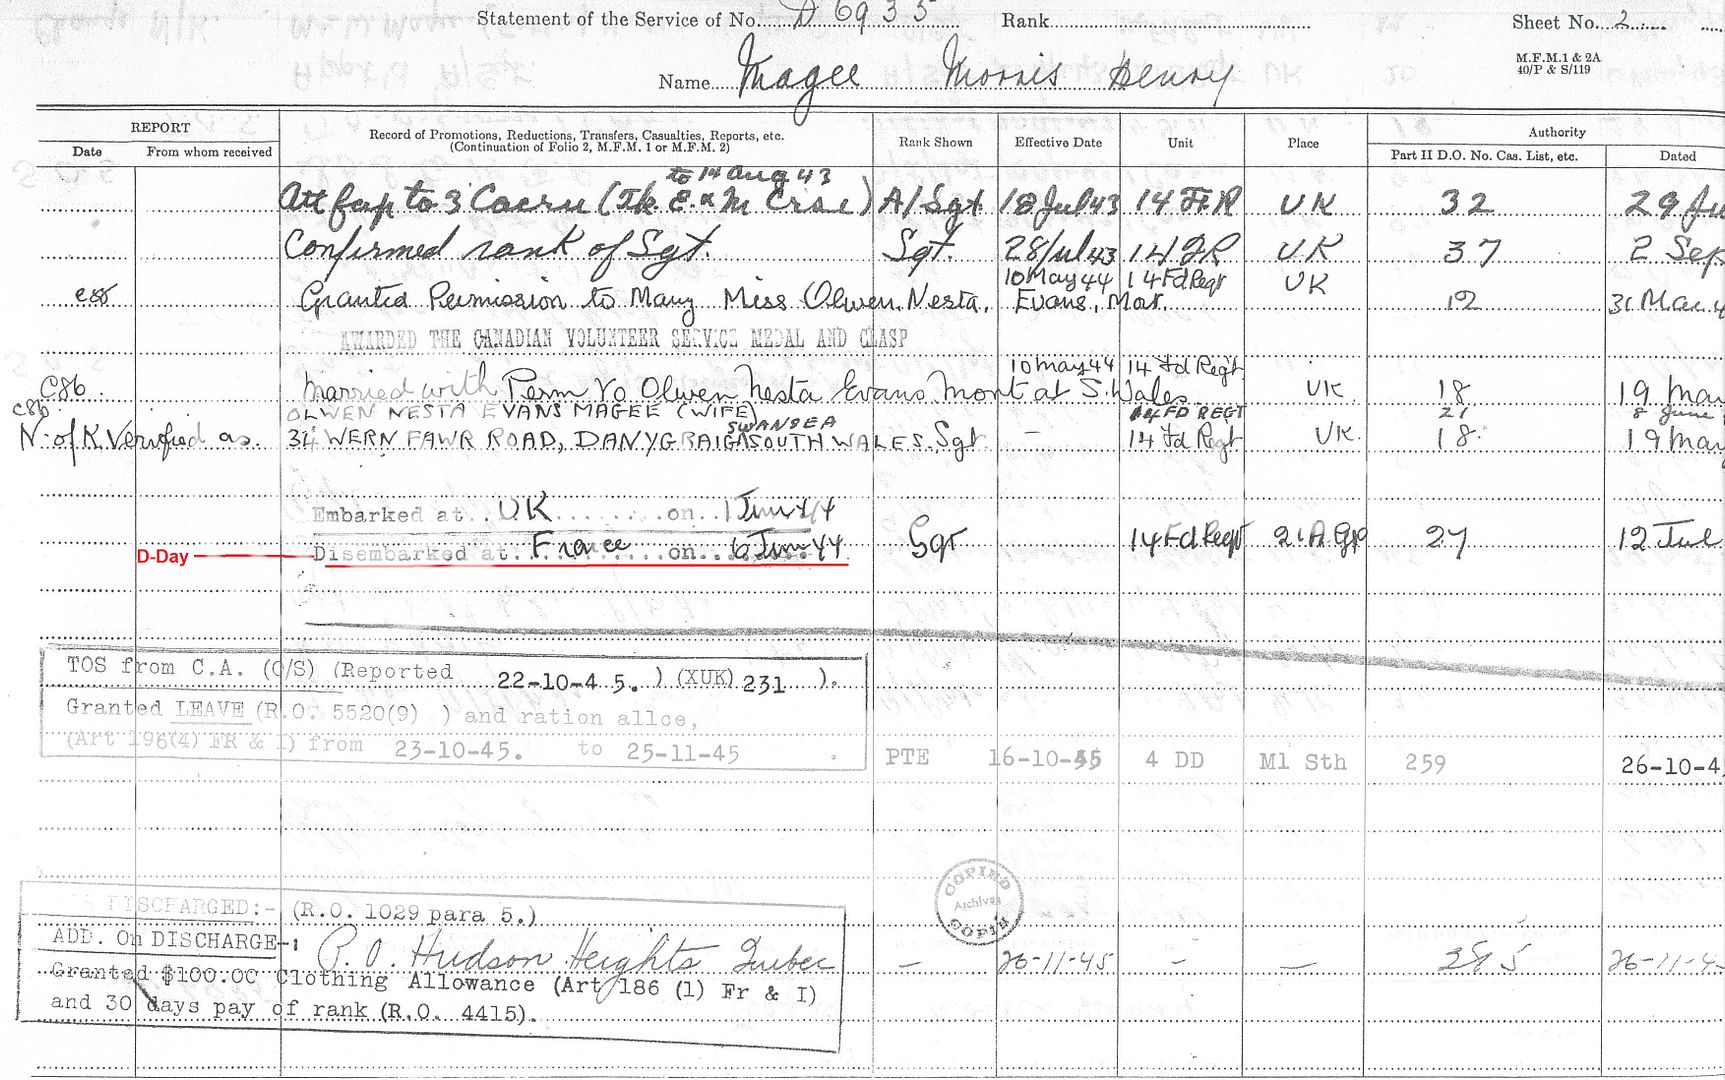 Statement of the Service of No. D 6935 Rank Sheet No. 2
M.F.M.1 & 2A
40/P & S/119
Name Magee Morris Henry
REPORT
Date From whom received
Record of Promotions, Reductions, Transfers, Casualties, Reports, etc.
(Continuation of Folio 2, M.F.M. 1 or M.F.M. 2)
Rank Shown Effective Date Unit Place
Authority
Part II D.O. No. Cas. List, etc. Dated
to 14 Aug 43
Att to 3 Cacru (Tk. E. & M Crse) A/Sgt 18 Jul 43 14 F.R UK 32 29 Ju
Confirmed rank of Sgt. Sgt. 28 Jul 43 14 FR UK 37 2 Sep
10 May 44 14 Fd Regt UK
Granted Permission to Marry Miss Olwen Nesta. Evans, Mar. 12 31 Mar. 4
AWARDED THE CANADIAN VOLUNTEER SERVICE MEDAL AND CLASP
10 May 44 14 Fd Regt
C86. Married with Perm to Olwen Nesta Evans Mont at S. Wales UK. 18 19 May
C86. OLWEN NESTA EVANS MAGEE (WIFE) 14 FD REGT 21 8 June
SWANSEA
N. of K Verified as. 34 WERN FAWR ROAD, DANYGRAIG SOUTH WALES. Sgt – 14 Fd Regt UK. 18. 19 May
Embarked at UK on 1 Jun 44
D-Day Disembarked at France on 6 Jun 44 Sgt 14 Fd Regt 21 A Gp 27 12 Jul
TOS from C.A. (O/S) (Reported 22-10-45. ) (XUK) 231 ).
Granted LEAVE (R.O. 5520(9) ) and ration allce,
(Art 196(4) FR & I) from 23-10-45. to 25-11-45 .
PTE 16-10-45 4 DD Ml Sth 259 26-10-4
COPIED
Archives
COPIÉ
DISCHARGED:- (R.O. 1029 para 5.)
ADD. On DISCHARGE-: P.O. Hudson Heights Quebec – 26-11-45 – – 285 26-11-45
Granted $100.00 Clothing Allowance (Art 186 (1) Fr & I)
and 30 days pay of rank (R.O. 4415).